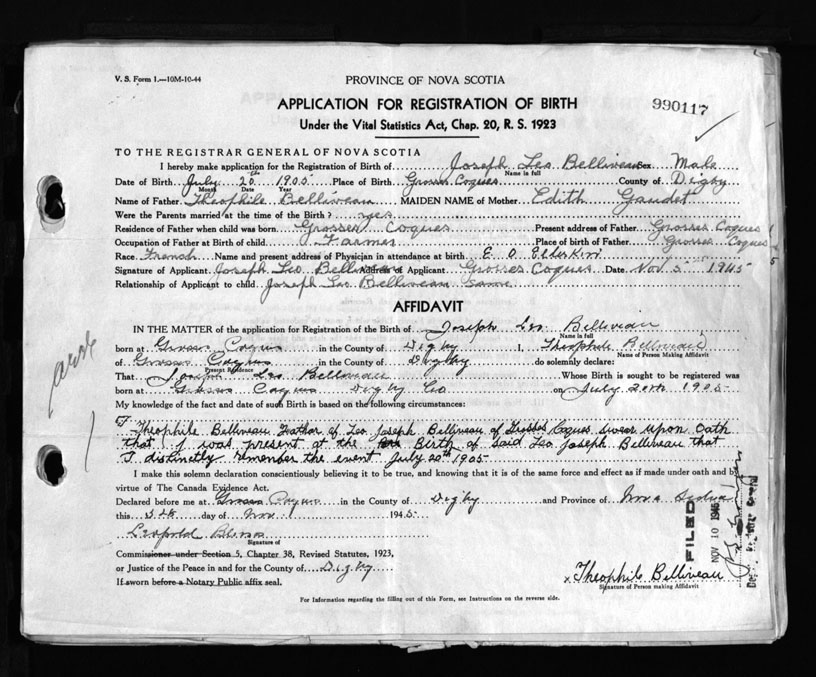 V. S. Form 1.—10M-10-44
PROVINCE OF NOVA SCOTIA
APPLICATION FOR REGISTRATION OF BIRTH
990117
Under the Vital Statistics Act, Chap. 20, R. S. 1923
TO THE REGISTRAR GENERAL OF NOVA SCOTIA
I hereby make application for the Registration of Birth of Joseph Leo Belliveau Sex Male
Name in full
Date of Birth July 20th 1905 Place of Birth Grosses Coques County of Digby
Month Date Year
Name of Father Theophile Belliveau MAIDEN NAME of Mother Edith Gaudet
Were the Parents married at the time of the Birth? yes
Residence of Father when child was born Grosses Coques Present address of Father Grosses Coques
Occupation of Father at Birth of child Farmer Place of birth of Father Grosses Coques
Race French Name and present address of Physician in attendance at birth E O Elderkin
Signature of Applicant Joseph Leo Belliveau Address of Applicant Grosses Coques Date Nov 5th 1945
Relationship of Applicant to child Joseph Leo Belliveau same
AFFIDAVIT
IN THE MATTER of the application for Registration of the Birth of Joseph Leo Belliveau
Name in full
born at Grosses Coques in the County of Digby I, Theophile Belliveau
Name of Person Making Affidavit
of Grosses Coques in the County of Digby do solemnly declare:
Present Residence
That Joseph Leo Belliveau Whose Birth is sought to be registered was
born at Grosses Coques Digby Co on July 20th 1905
My knowledge of the fact and date of such Birth is based on the following circumstances:
I Theophile Belliveau Father of Leo Joseph Belliveau of Grosses Coques swear upon Oath
that I was present at the Birth of said Leo Joseph Belliveau that
I distinctly remember the event July 20th 1905
I make this solemn declaration conscientiously believing it to be true, and knowing that it is of the same force and effect as if made under oath and by
virtue of The Canada Evidence Act.
Declared before me at Grosses Coques in the County of Digby and Province of Nova Scotia
this 5th day of Nov 1945
Leopold
Signature of
Commissioner under Section 5, Chapter 38, Revised Statutes, 1923,
or Justice of the Peace in and for the County of Digby
If sworn before a Notary Public affix seal.
x Theophile Belliveau
Signature of Person making Affidavit
For Information regarding the filling out of this Form, see Instructions on the reverse side.
FILED
NOV 10 1945